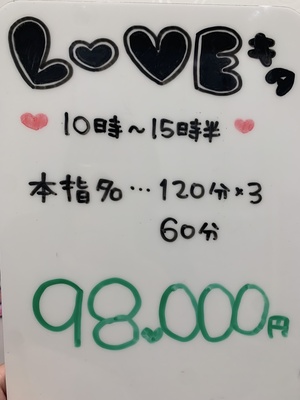 LOVEキタ
10時～15時半
本指70…120分×3
60分
98.000円